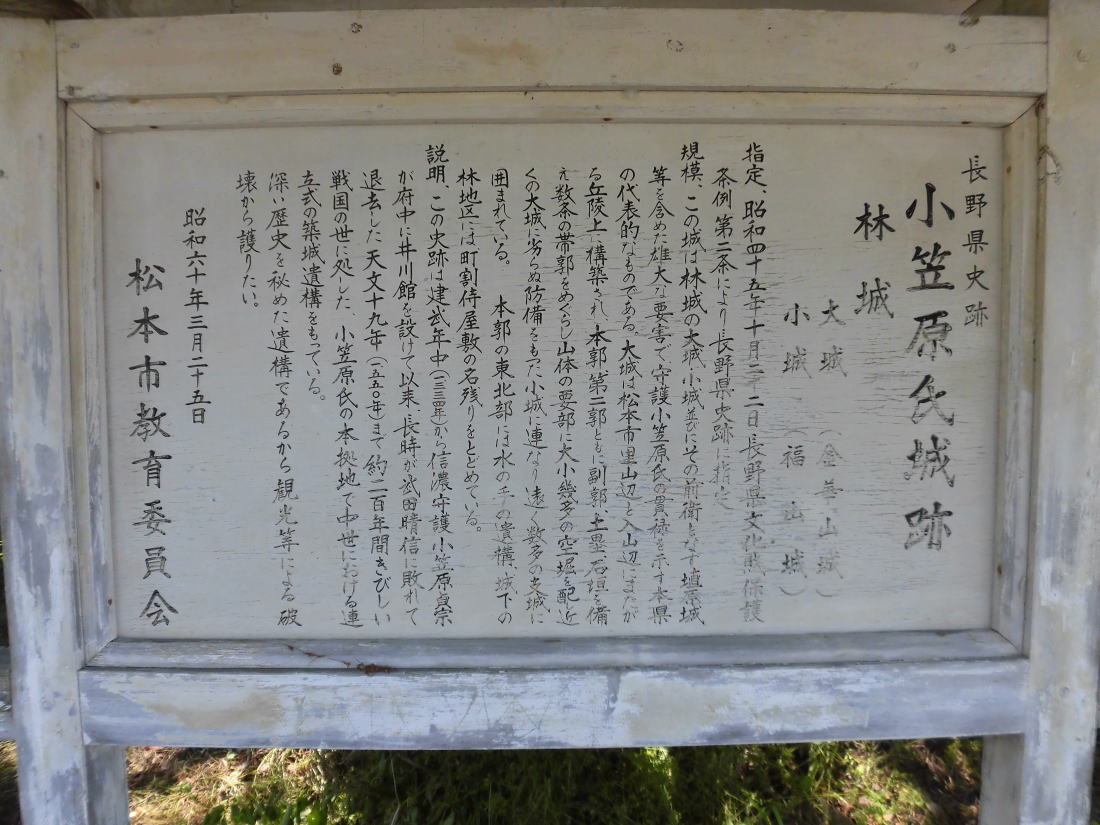 長野県史跡
小笠原氏城跡
林城
大城（金華山城）
小城（福山城）
指定、昭和四十五年十月二十二日長野県文化財保護
条例第二条により長野県史跡に指定
規模、この城は林城の大城・小城並びにその前衛をなす埴原城
等を含めた雄大な要害で、守護小笠原氏の貫禄を示す本県
の代表的なものである。大城は松本市里山辺と入山辺にまたが
る丘陵上に構築され、本郭、第二郭ともに副郭、土塁、石垣を備
え数条の帯郭をめぐらし山体の要部に大小幾多の空堀を配し近
くの大城に劣らぬ防備をもった小城に連なり遠く数多の支城に
囲まれている。　本郭の東北部には水の手の遺構、城下の
林地区には町割侍屋敷の名残りをとどめている。
説明、この史跡は建武年中（一三三四年）から信濃守護小笠原貞宗
が府中に井川館を設けて以来、長時が武田晴信に敗れて
退去した天文十九年（一五五〇年）まで約二百年間きびしい
戦国の世に処した、小笠原氏の本拠地で中世における連
立式の築城遺構をもっている。
深い歴史を秘めた遺構であるから観光等による破
壊から護りたい。
昭和六十年三月二十五日
松本市教育委員会